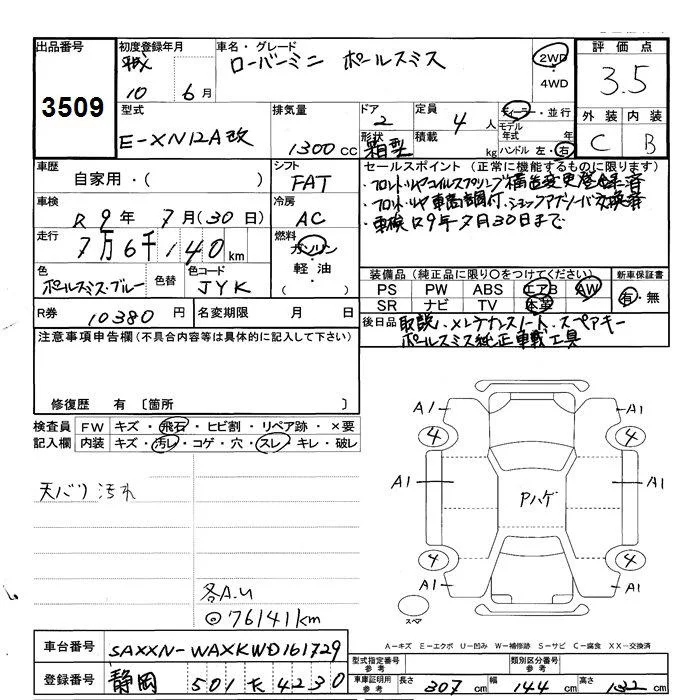 出品番号 3509
初度登録年月 平成 10年 6月
車名・グレード ローバーミニ ポールスミス
2WD・4WD
評価点 3.5
外装 C 内装 B
型式 E-XN12A改
排気量 1300cc
ドア 2
形状 箱型
定員 4人
積載 kg
ディーラー・並行
モデル年式 年
ハンドル 左・右
車歴 自家用・( )
シフト FAT
車検 R9年 7月(30日)
冷房 AC
走行 7万6千140km
燃料 ガソリン・軽油・
色 ポールスミス・ブルー 色替
色コード JYK
R券 10380円
名変期限 月 日
セールスポイント(正常に機能するものに限ります)
・フロント・リヤコイルスプリング構造変更登録済
・フロント・リヤ車高調付、ショックアブソーバ交換済
・車検R9年7月30日まで
装備品(純正品に限り〇をつけてください)
PS PW ABS エアB AW
SR ナビ TV 本革
新車保証書 有・無
後日品 取説、メンテナンスノート、スペアキー
ポールスミス純正車載工具
注意事項申告欄(不具合内容等は具体的に記入して下さい)
修復歴 有 〔箇所 〕
検査員記入欄
FW キズ・飛石・ヒビ割・リペア跡・×要
内装 キズ・汚レ・コゲ・穴・スレ・キレ・破レ
天バリ汚れ
各A.U
◎76141km
A1 A1
4 4
A1 A1
Pハゲ
4 4
A1 A1
スペア
A-キズ E-エクボ U-凹み W-補修跡 S-サビ C-腐食 XX-交換済
車台番号 SAXXN-WAXKWD161729
登録番号 静岡 501 モ 4230
型式指定番号 参考
類別区分番号 参考
車庫証明用 参考 長さ 307cm 幅 144cm 高さ 132cm